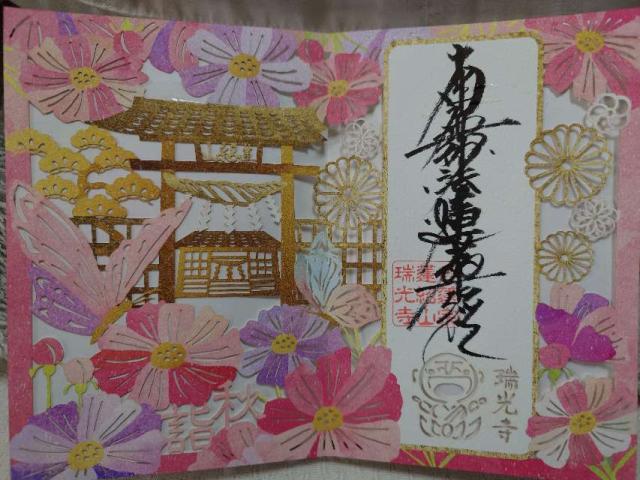 南無妙法蓮華経
瑞光寺
瑞光寺
秋詣